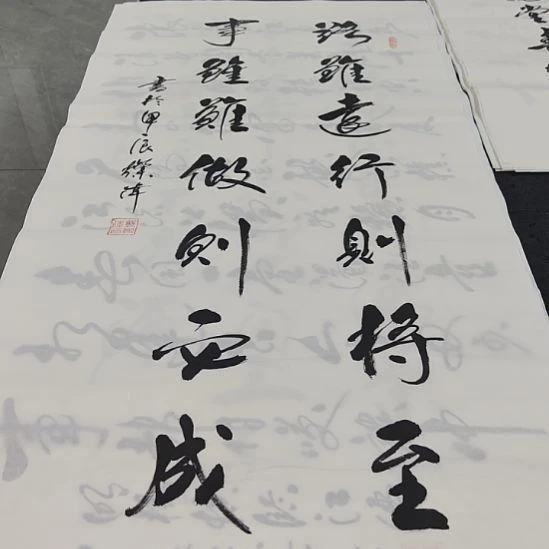 路雖遠行則将至
事雖難做则必成
書於甲辰